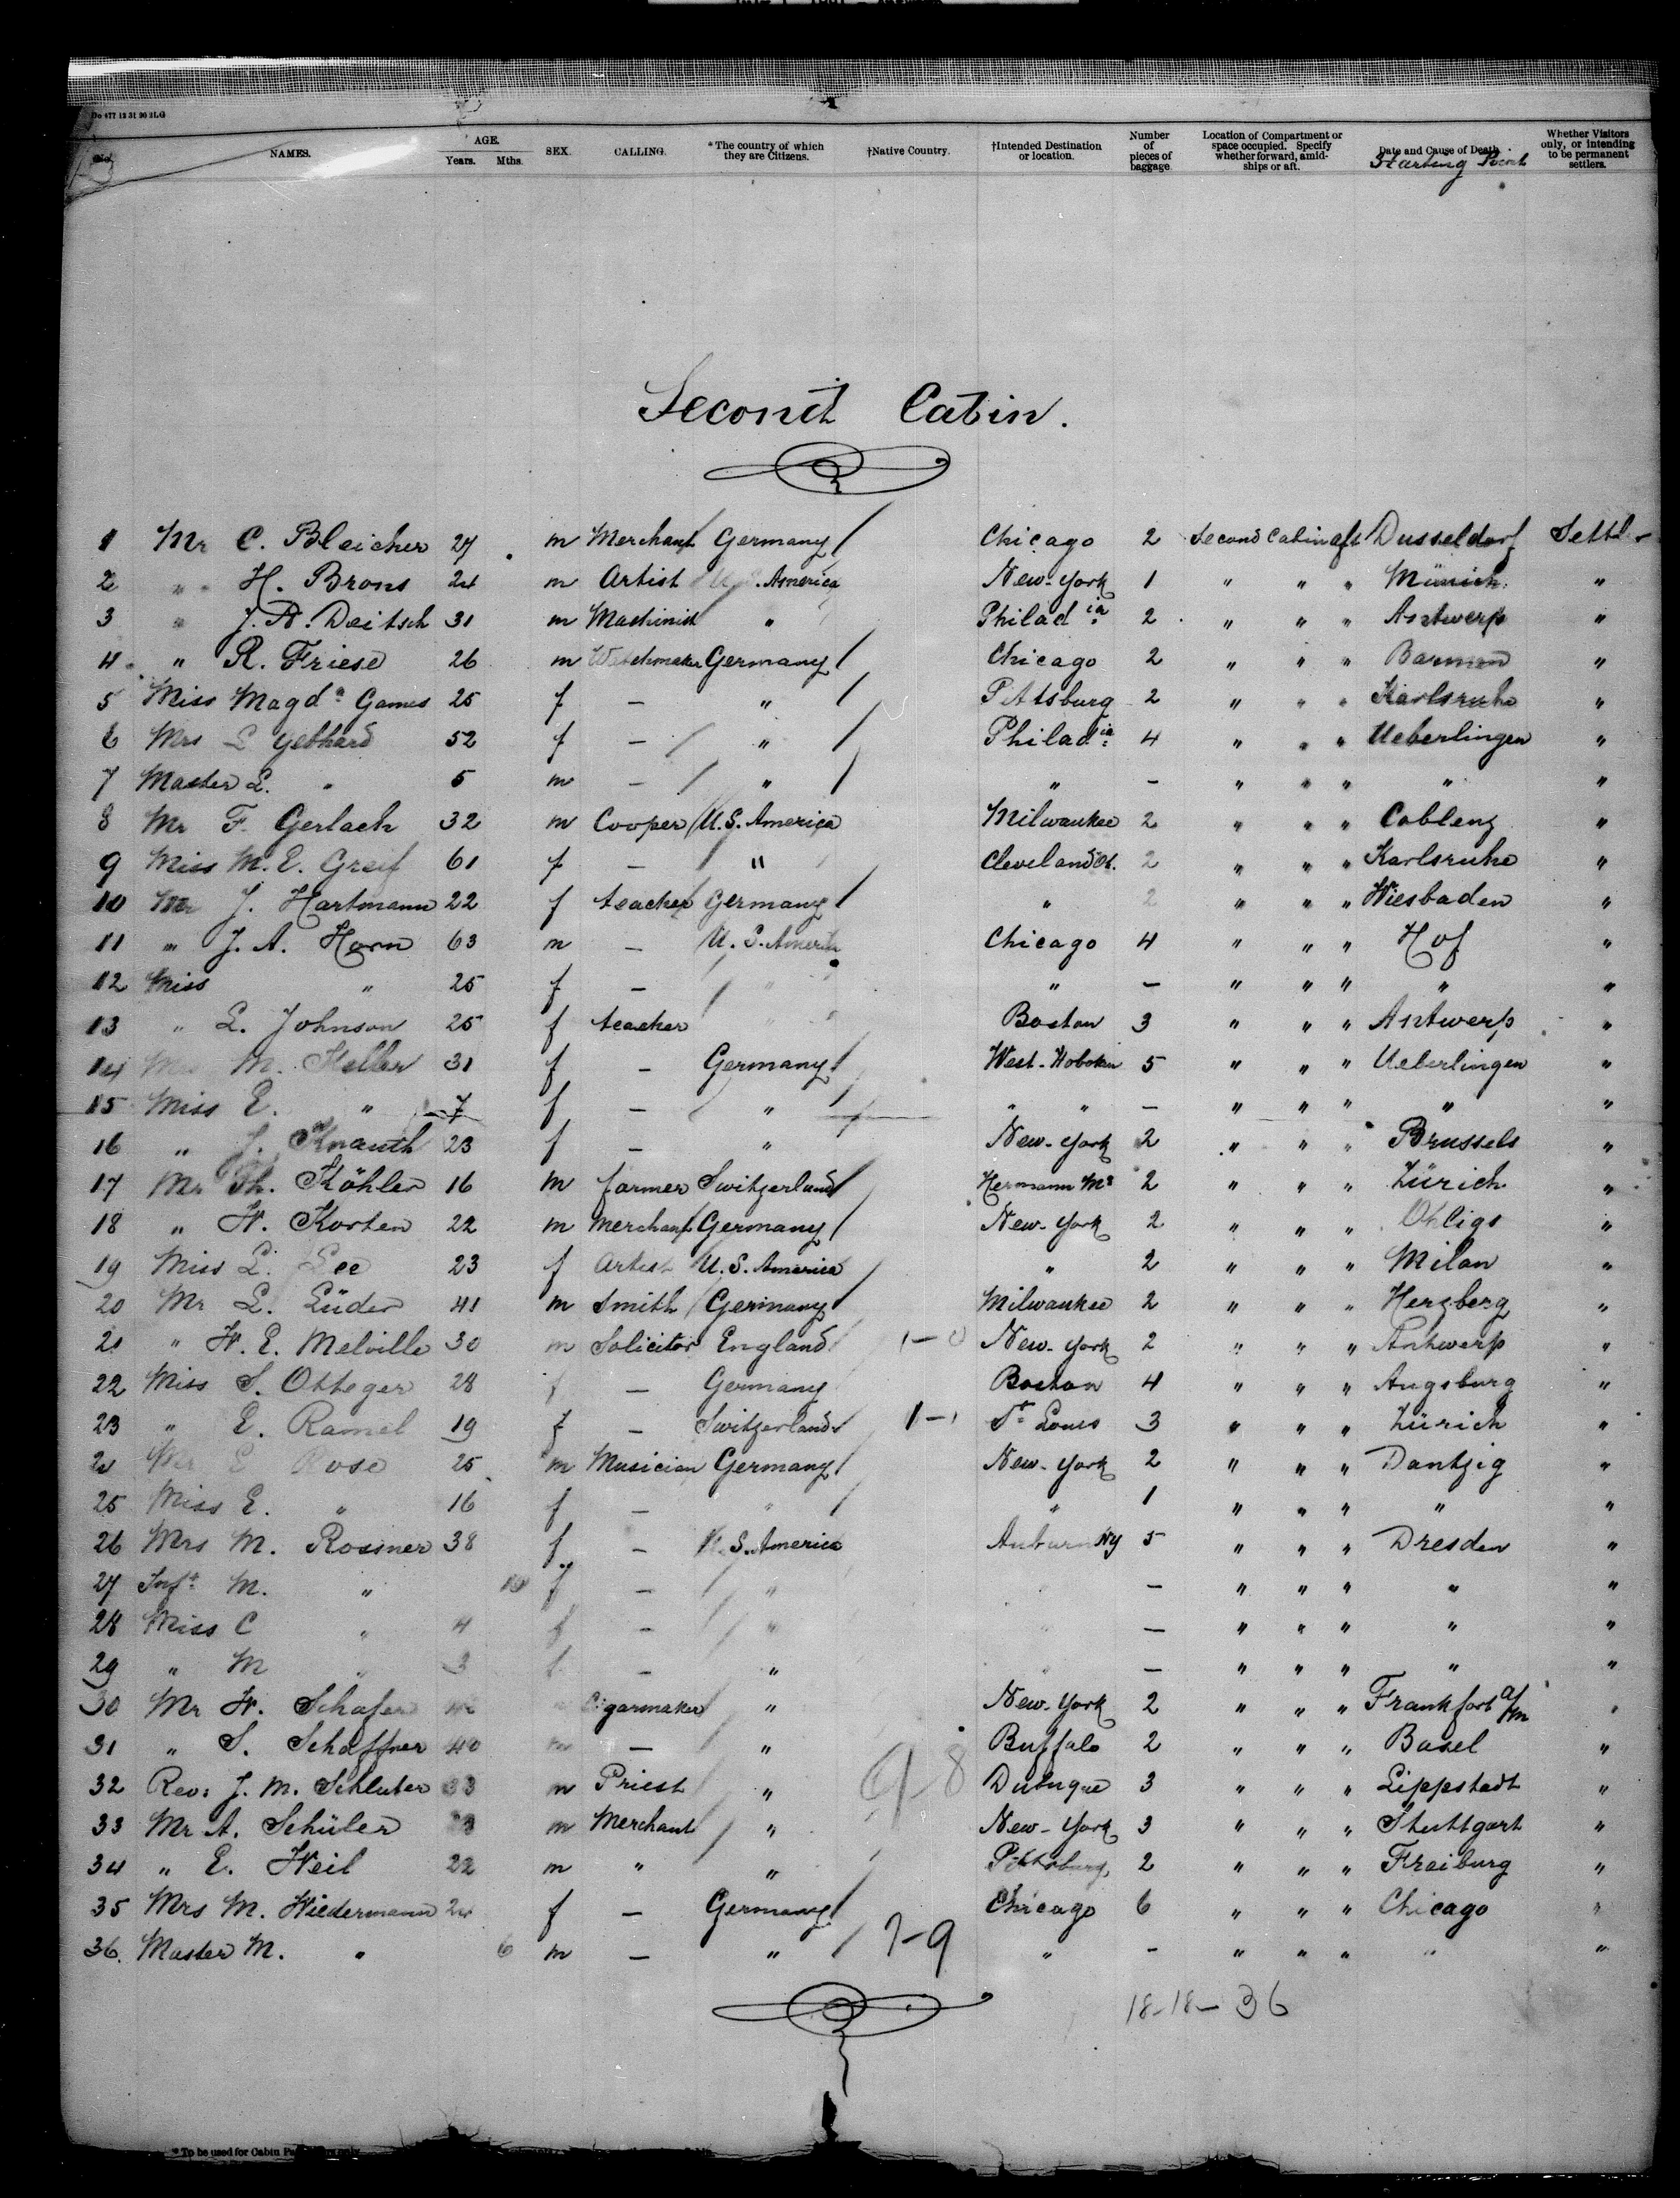 Do 477 12 31 90 2LG
NAMES. AGE. Years. Mths. SEX. CALLING. *The country of which they are Citizens. †Native Country. †Intended Destination or location. Number of pieces of baggage. Location of Compartment or space occupied. Specify whether forward, amidships or aft. Date and Cause of Death. Whether Visitors only, or intending to be permanent settlers.
Starting Point
Second Cabin.
1 Mr C. Bleicher 27 m Merchant Germany Chicago 2 Second Cabin aft Dusseldorf Settler
2 " H. Brons 24 m Artist U.S. America New-York 1 " " " Münich "
3 " J. A. Deitsch 31 m Machinist " Philad ia 2 " " " Antwerp "
4 " R. Friese 26 m Watchmaker Germany Chicago 2 " " " Barmen "
5 Miss Magda Games 25 f — " Pittsburg 2 " " " Karlsruhe "
6 Mrs L Gebhard 52 f — " Philad ia 4 " " " Ueberlingen "
7 Master L. " 5 m — " " — " " " " "
8 Mr F. Gerlach 32 m Cooper U.S. America Milwaukee 2 " " " Coblenz "
9 Miss M. E. Greif 61 f — " Cleveland Oh. 2 " " " Karlsruhe "
10 Mr J. Hartmann 22 f teacher Germany " 2 " " " Wiesbaden "
11 " J. A. Horn 63 m — U.S. America Chicago 4 " " " Hof "
12 Miss " 25 f — " " — " " " " "
13 " L. Johnson 25 f teacher " Boston 3 " " " Antwerp "
14 M. Keller 31 f — Germany West-Hoboken 5 " " " Ueberlingen "
15 Miss E. " 7 f — " " " — " " " " "
16 " J. Knauth 23 f — " New-York 2 " " " Brussels "
17 Mr Th. Köhler 16 m farmer Switzerland Hermann Mo 2 " " " Zürich "
18 " W. Korten 22 m Merchant Germany New-York 2 " " " Ohligs "
19 Miss L. Lee 23 f Artist U.S. America " 2 " " " Milan "
20 Mr L. Lüder 41 m Smith Germany Milwaukee 2 " " " Herzberg "
21 " W. E. Melville 30 m Solicitor England 1-0 New-York 2 " " " Antwerp "
22 Miss S. Otteger 28 f — Germany Boston 4 " " " Augsburg "
23 " E. Ramel 19 f — Switzerland 1-1 St Louis 3 " " " Zürich "
24 Mr E Rose 25 m Musician Germany New-York 2 " " " Dantzig "
25 Miss E. " 16 f — " " 1 " " " " "
26 Mrs M. Rossner 38 f — U.S. America Auburn NY 5 " " " Dresden "
27 Inft M. " 10 f — " — " " " " "
28 Miss C " 4 f — " — " " " " "
29 " M " 3 f — " — " " " " "
30 Mr W. Schafer m Cigarmaker " New-York 2 " " " Frankfort a/m "
31 " S. Schaffner 40 m — " Buffalo 2 " " " Basel "
32 Rev: J. M. Schluter 33 m Priest " 9-8 Dubuque 3 " " " Lippstadt "
33 Mr A. Schüler 23 m Merchant " New-York 3 " " " Stuttgart "
34 " E. Weil 22 m " " Pittsburg, 2 " " " Freiburg "
35 Mrs M. Wiedermann 24 f — Germany Chicago 6 " " " Chicago "
36. Master M. " 6 m — " 7-9 " — " " " " "
18-18-36
* To be used for Cabin Passengers only